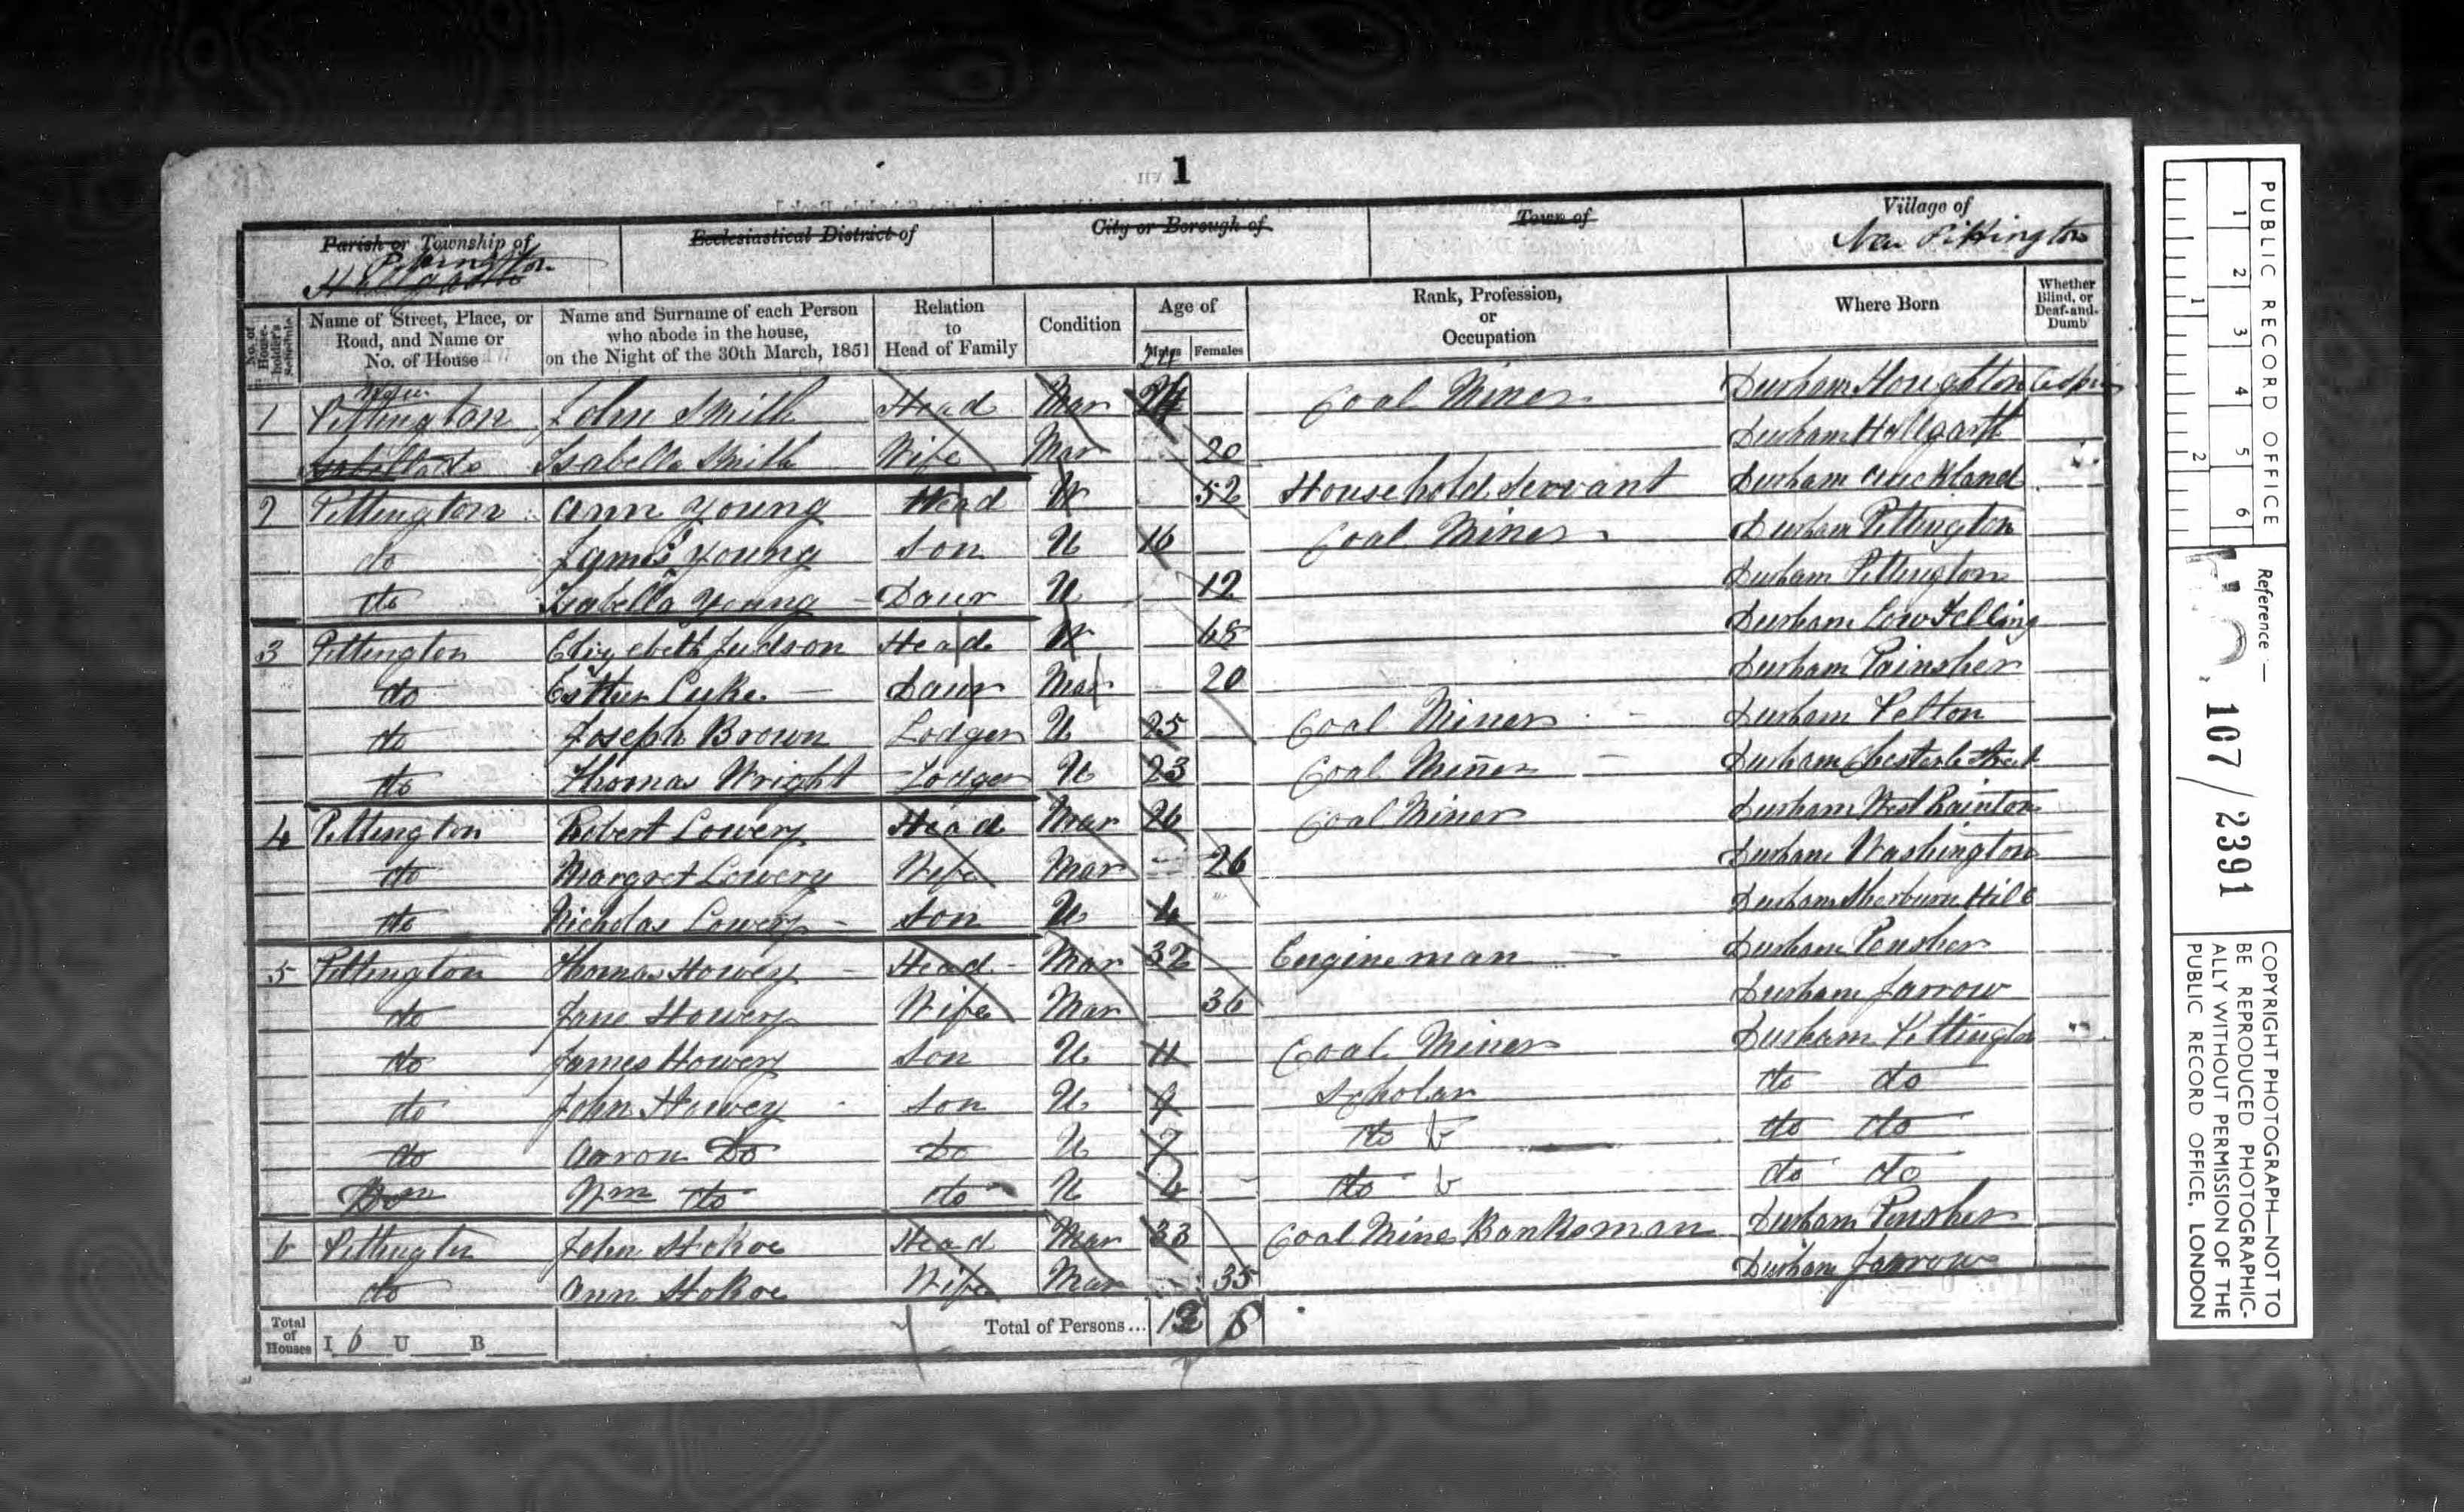 1
Parish or Township of
Pittington
Hallgarth
Ecclesiastical District of
City or Borough of
Town of
Village of
New Pittington
No. of House-holder's Schedule
Name of Street, Place, or Road, and Name or No. of House
Name and Surname of each Person who abode in the house, on the Night of the 30th March, 1851
Relation to Head of Family
Condition
Age of
Males Females
Rank, Profession, or Occupation
Where Born
Whether Blind, or Deaf-and-Dumb
1 New Pittington John Smith Head Mar 24 Coal Miner Durham Houghton
do Isabella Smith Wife Mar 20 Durham Hallgarth
2 Pittington Ann Young Head W 52 Household Servant Durham Auckland
do James Young Son U 16 Coal Miner Durham Pittington
do Isabella Young Daur U 12 Durham Pittington
3 Pittington Elizebeth Judson Head W 68 Durham Low Felling
do Esther Luke Daur Mar 20 Durham Painsher
do Joseph Brown Lodger U 25 Coal Miner Durham Pelton
do Thomas Wright Lodger U 23 Coal Miner Durham Chesterle Street
4 Pittington Robert Lowery Head Mar 26 Coal Miner Durham West Rainton
do Margret Lowery Wife Mar 26 Durham Washington
do Nicholas Lowery Son U 4 Durham Sherburn Hill
5 Pittington Thomas Howey Head Mar 32 Engine man Durham Pensher
do Jane Howey Wife Mar 36 Durham Jarrow
do James Howey Son U 11 Coal Miner Durham Pittington
do John Howey Son U 9 Scholar do do
do Aaron Do Do U 7 do do do
Wm do do U 4 do do do
6 Pittington John Stokoe Head Mar 33 Coal Mine Banksman Durham Pensher
do Ann Stokoe Wife Mar 35 Durham Jarrow
Total of Houses I 6 U B Total of Persons... 12 8
PUBLIC RECORD OFFICE
1 2 3 4 5 6
1 2
Reference :—
107/2391
COPYRIGHT PHOTOGRAPH—NOT TO
BE REPRODUCED PHOTOGRAPHIC-
ALLY WITHOUT PERMISSION OF THE
PUBLIC RECORD OFFICE, LONDON